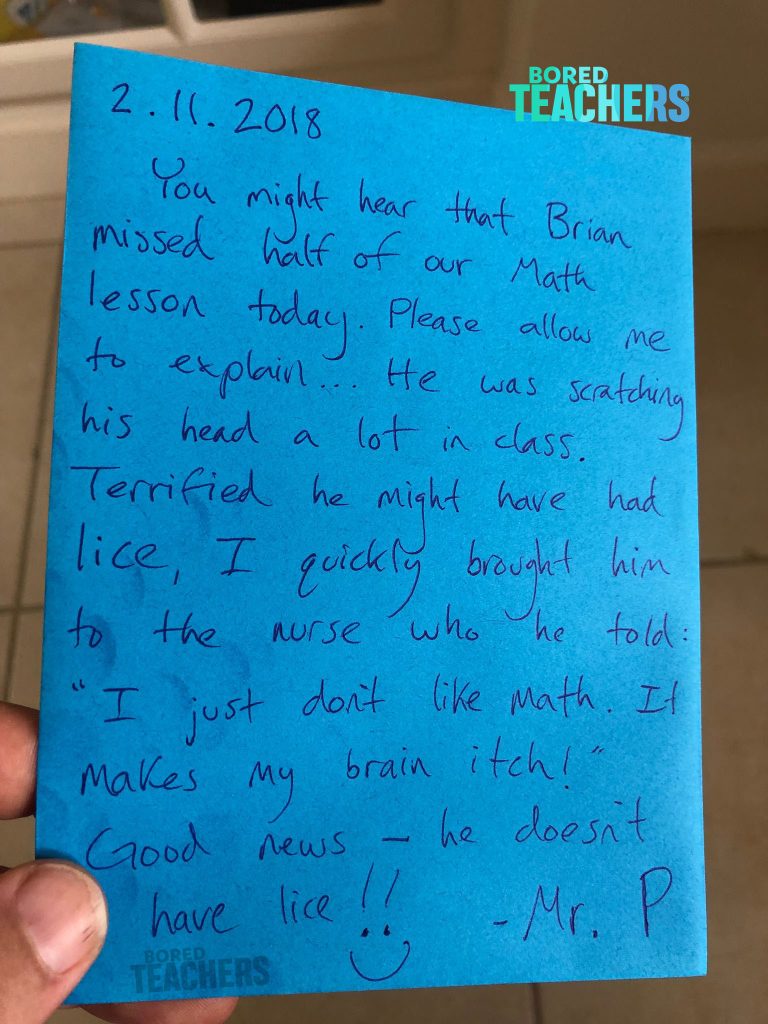 BORED
TEACHERS
2.11.2018
You might hear that Brian
missed half of our Math
lesson today. Please allow me
to explain... He was scratching
his head a lot in class.
Terrified he might have had
lice, I quickly brought him
to the nurse who he told:
"I just don't like math. It
makes my brain itch!"
Good news – he doesn't
have lice!! - Mr. P
BORED
TEACHERS